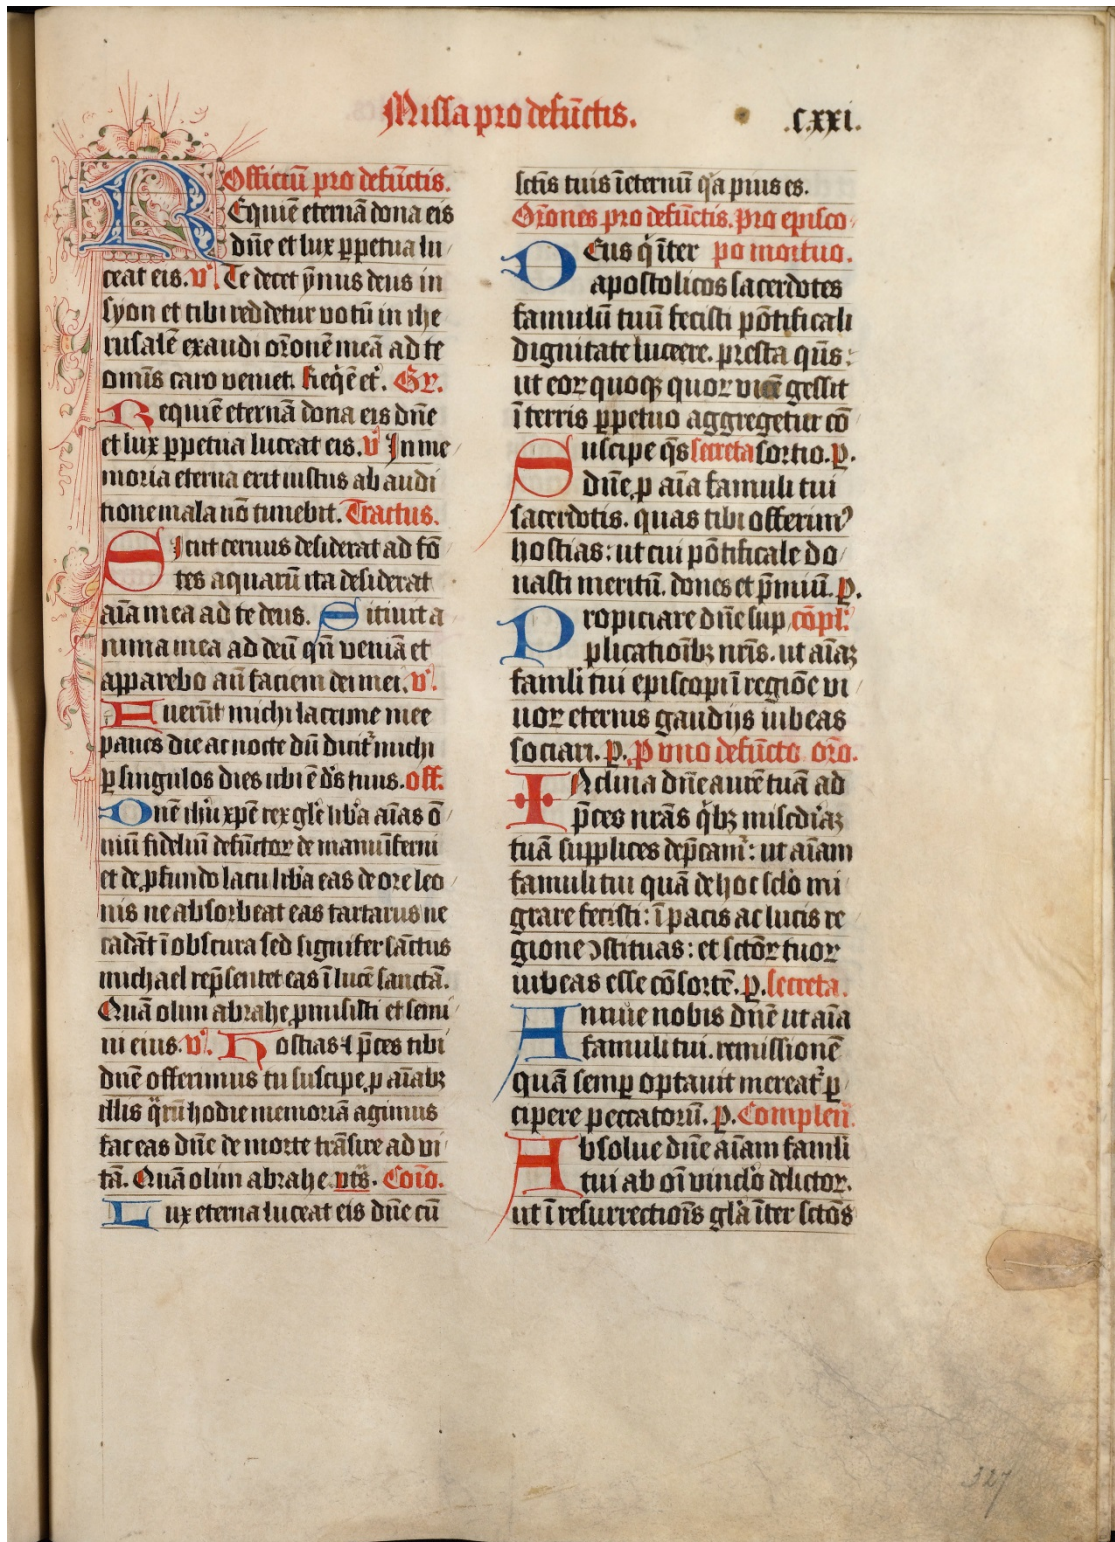 Missa pro defūctis.
.c.xxi.
Officiū pro defūctis.
REquiē eternā dona eis
dn̄e et lux ꝑpetua lu
ceat eis. v̊. Te decet ẏmnus deus in
syon et tibi reddetur votū in ihe
rusalē exaudi or̄onē meā ad te
omīs caro veniet. Reqēē et̄. Gr̄.
Requiē eternā dona eis dn̄e
et lux ꝑpetua luceat eis. v̊ In me
moria eterna erit iustus ab audi
tione mala nō timebit. Tractus.
SIcut ceruus desiderat ad fō
tes aquarū ita desiderat
aīa mea ad te deus. Sitiuit a
nima mea ad deū qn̄ veniā et
apparebo an̄ faciem dei mei. v̊.
Fuerūt michi lacrime mee
panes die ac nocte dū dicit᷑ michi
ꝑ singulos dies ubi ē ds̄ tuus. off.
Dn̄ē ihū xp̄e rex gl̄e lib̄a aīas ō
niū fideliū defūctoꝝ de manu īferni
et de ꝓfundo lacu lib̄a eas de ore leo
nis ne absorbeat eas tartarus ne
cadāt ī obscura sed signifer sāctus
michael repn̄sentet eas ī lucē sanctā.
Quā olim abrahe ꝓmisisti et semi
ni eius. v̊. Hostias ⁊ p̄ces tibi
dn̄e offerimus tu suscipe ꝓ aīabꝫ
illis qr̄ū hodie memoriā agimus
fac eas dn̄e de morte trāsire ad vi
tā. Quā olim abrahe. vts̄. Cōio.
Lux eterna luceat eis dn̄e cū
sctīs tuis ī eternū q̇a pius es.
Or̄ones pro defūctis. pro episco
DEus q̇ īter po mortuo.
apostolicos sacerdotes
famulū tuū fecisti pōtificali
dignitate lucere. presta qn̄s:
ut eoꝝ quoqꝫ quoꝝ vicē gessit
ī terris ꝑpetuo aggregetur cō
Suscipe qs̄ secreta sortio. ꝑ.
dn̄e ꝓ aīa famuli tui
sacerdotis. quas tibi offerimꝰ
hostias: ut cui pōtificale do
nasti meritū. dones et p̄miū. ꝑ.
Propiciare dn̄e sup cōpl̄:
plicatiōibꝫ nr̄is. ut aīaꝫ
famli tui episcopi ī regiōe vi
uoꝝ eternis gaudijs iubeas
sociari. ꝑ. P uno defūcto or̄o.
INclina dn̄e aurē tuā ad
p̄ces nr̄as q̇bꝫ miscdīaꝫ
tuā supplices dep̄camˀ: ut aīam
famuli tui quā de hoc sclo mi
grare fecisti: ī pacis ac lucis re
gione ↄstituas: et sctōꝝ tuoꝝ
iubeas esse cōsortē. ꝑ. secreta.
Annue nobis dn̄e ut aīa
famuli tui. remissionē
quā semꝑ optauit mereat᷑ ꝑ
cipere peccatorū. ꝑ. Complen̄.
Absolue dn̄e aīam famli
tui ab oī vinclo delictoꝝ.
ut ī resurrectiōis gl̄a īter sctōs
327